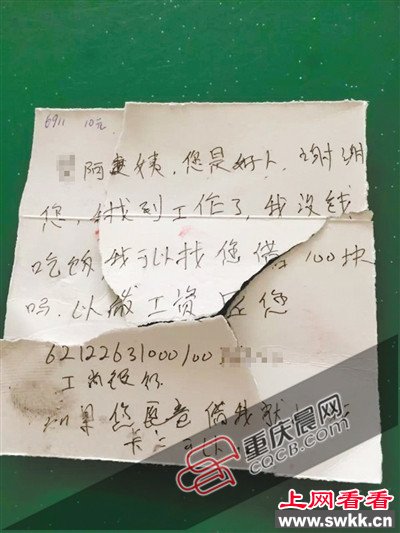 6911 10元
阿姨,您是好人,谢谢
您,我找到工作了,我没钱
吃饭我可以找您借 100块
吗,以发工资 还您
62122631000100
工商银行
如果您愿意借我就
卡上 可以
重庆晨网
CQCB.COM
上网看看
www.swkk.cn